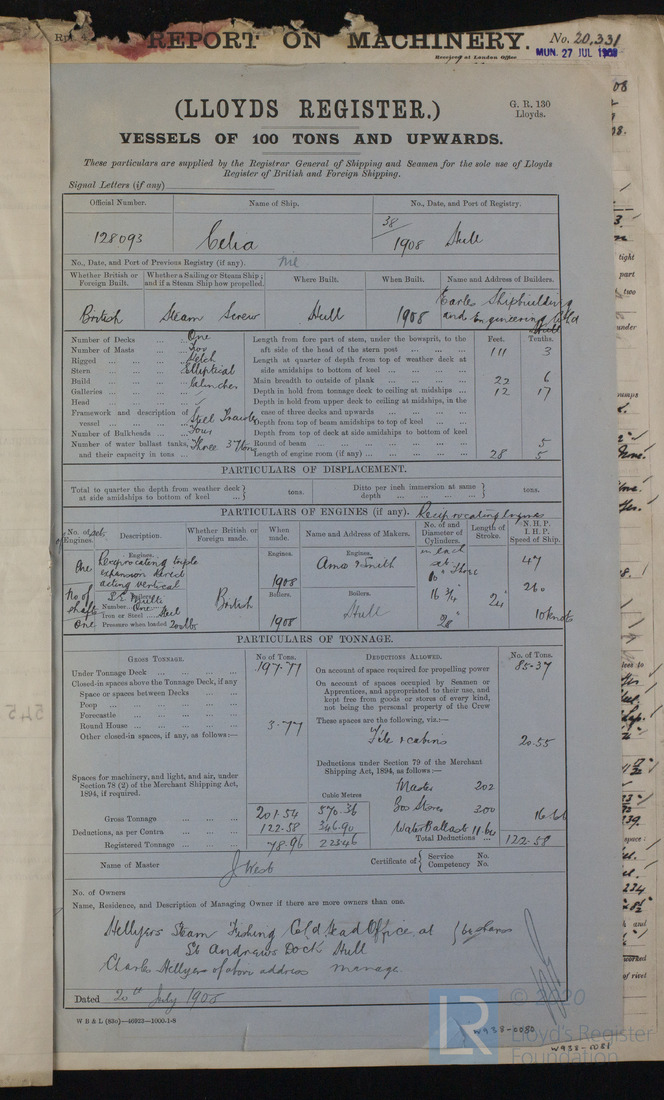 REPORT ON MACHINERY. No. 20,331
Received at London Office MUN. 27 JUL 1908
(LLOYDS REGISTER.)
G. R. 130
Lloyds.
VESSELS OF 100 TONS AND UPWARDS.
These particulars are supplied by the Registrar General of Shipping and Seamen for the sole use of Lloyds
Register of British and Foreign Shipping.
Signal Letters (if any)
Official Number. Name of Ship. No., Date, and Port of Registry.
128093 Celia 38/1908 Hull
No., Date, and Port of Previous Registry (if any).
Whether British or Foreign Built. Whether a Sailing or Steam Ship; and if a Steam Ship how propelled. Where Built. When Built. Name and Address of Builders.
British Steam Screw Hull 1908 Earles Shipbuilding and Engineering Co Ld Hull
Number of Decks One
Number of Masts Two
Rigged Ketch
Stern Elliptical
Build Clincher
Galleries
Head
Framework and description of vessel Steel Trawler
Number of Bulkheads Four
Number of water ballast tanks, and their capacity in tons Three 37 tons
Feet. Tenths.
Length from fore part of stem, under the bowsprit, to the aft side of the head of the stern post 111 3
Length at quarter of depth from top of weather deck at side amidships to bottom of keel
Main breadth to outside of plank 22 6
Depth in hold from tonnage deck to ceiling at midships 12 17
Depth in hold from upper deck to ceiling at midships, in the case of three decks and upwards
Depth from top of beam amidships to top of keel
Depth from top of deck at side amidships to bottom of keel
Round of beam 5
Length of engine room (if any) 28 5
PARTICULARS OF DISPLACEMENT.
Total to quarter the depth from weather deck at side amidships to bottom of keel tons. Ditto per inch immersion at same depth tons.
PARTICULARS OF ENGINES (if any). Reciprocating Engines
No. of sets of Engines. Description. Whether British or Foreign made. When made. Name and Address of Makers. No. of and Diameter of Cylinders. in each set Length of Stroke. N. H. P. I. H. P. Speed of Ship.
One Engines. Reciprocating triple expansion direct acting vertical
British
Engines. 1908
Engines. Amos & Smith
Three
16 3/4"
28"
24"
47
260
10 knots
No of shafts One
Boilers.
Number One
Iron or Steel Steel
Pressure when loaded 200 lbs
Boilers. 1908
Boilers. Hull
PARTICULARS OF TONNAGE.
GROSS TONNAGE. No. of Tons. DEDUCTIONS ALLOWED. No. of Tons.
Under Tonnage Deck 197.77
Closed-in spaces above the Tonnage Deck, if any
Space or spaces between Decks
Poop
Forecastle
Round House 3.77
Other closed-in spaces, if any, as follows:—
Spaces for machinery, and light, and air, under Section 78 (2) of the Merchant Shipping Act, 1894, if required.
Cubic Metres
Gross Tonnage 201.54 570.36
Deductions, as per Contra 122.58 346.90
Registered Tonnage 78.96 223.46
On account of space required for propelling power 85.37
On account of spaces occupied by Seamen or Apprentices, and appropriated to their use, and kept free from goods or stores of every kind, not being the personal property of the Crew
These spaces are the following, viz.:—
20.55
Deductions under Section 79 of the Merchant Shipping Act, 1894, as follows:—
Master 202
Bos Stores 300
Water Ballast 11.64
16.66
Total Deductions 122.58
Name of Master J West Certificate of { Service No. Competency No.
No. of Owners
Name, Residence, and Description of Managing Owner if there are more owners than one.
Hellyers Steam Fishing Co Ld Head Office at 64 shares
St Andrews Dock Hull
Charles Hellyer of above address manager
Dated 20th July 1908
W B & L (83o)—46923—1000-1-8
W938-0080
W938-0081
© 2020
Lloyd's Register
Foundation
LR